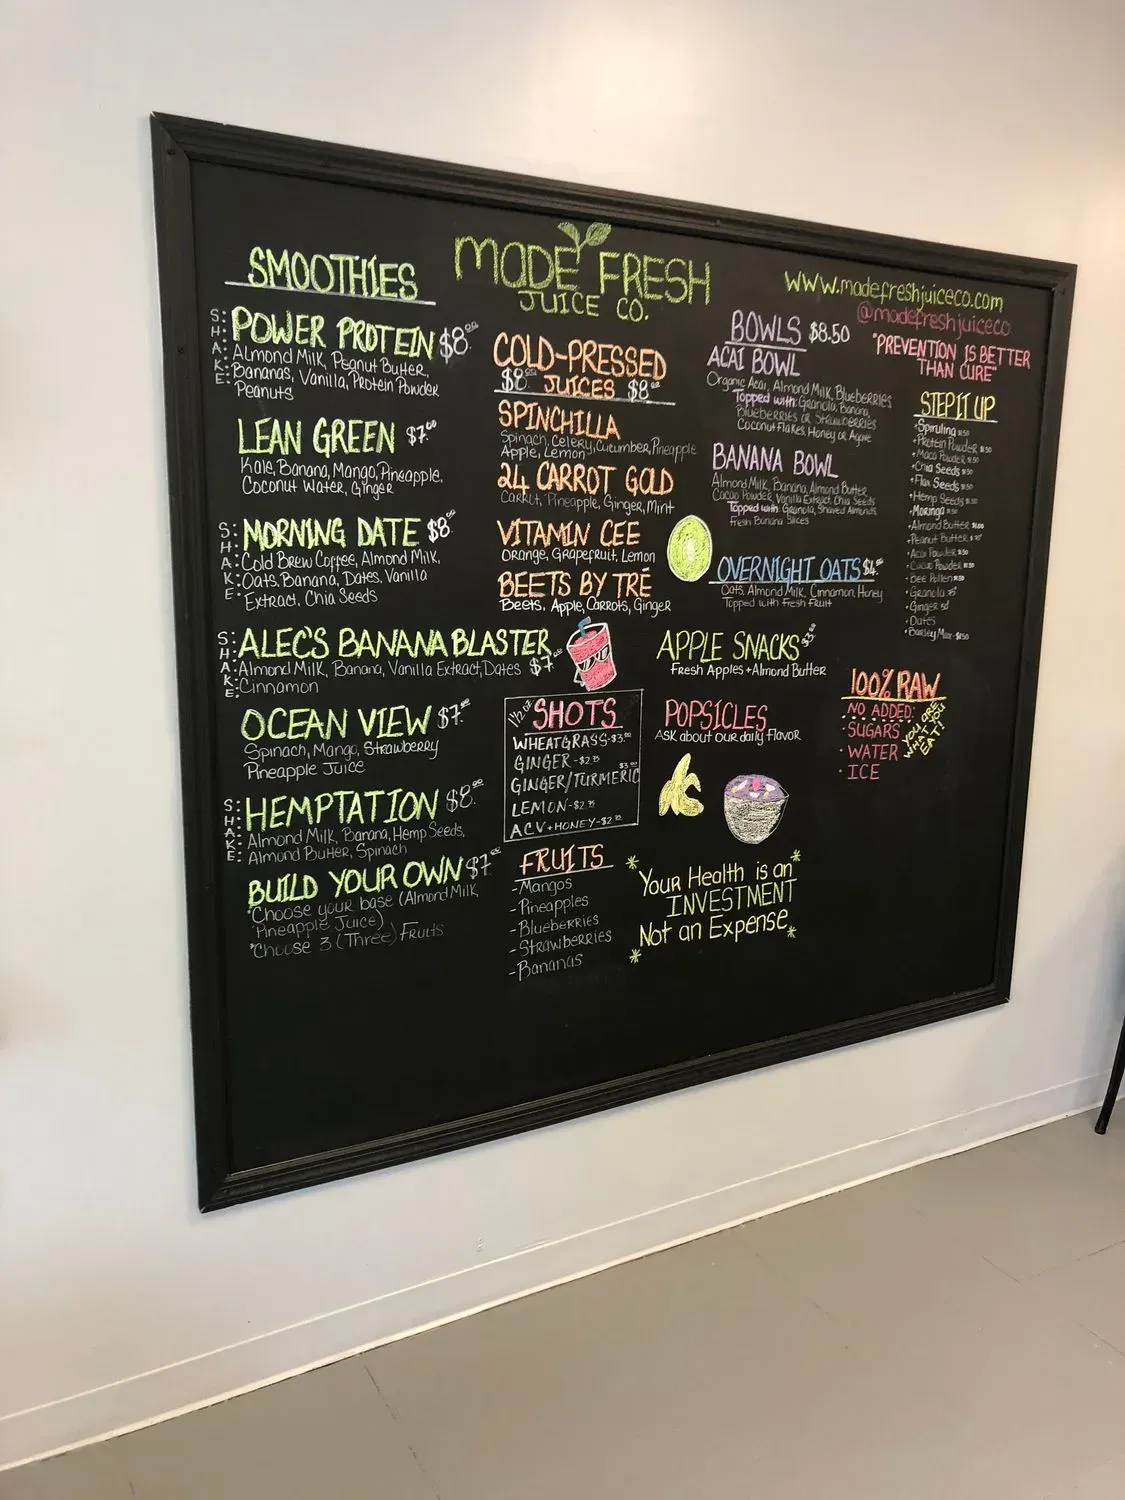 SMOOTHIES
S:H:A:K:E:
POWER PROTEIN $8.00
Almond Milk, Peanut Butter,
Bananas, Vanilla, Protein Powder
Peanuts
LEAN GREEN $7.00
Kale, Banana, Mango, Pineapple,
Coconut Water, Ginger
S:H:A:K:E:
MORNING DATE $8
Cold Brew Coffee, Almond Milk,
Oats, Banana, Dates, Vanilla
Extract, Chia Seeds
S:H:A:K:E:
ALEC'S BANANA BLASTER
Almond Milk, Banana, Vanilla Extract, Dates $7.00
Cinnamon
OCEAN VIEW $7.00
Spinach, Mango, Strawberry
Pineapple Juice
S:H:A:K:E:
HEMPTATION $8.00
Almond Milk, Banana, Hemp Seeds,
Almond Butter, Spinach
BUILD YOUR OWN $7.00
*Choose your base (Almond Milk,
Pineapple Juice)
*Choose 3 (Three) Fruits
MADE FRESH
JUICE CO.
COLD-PRESSED
$8.00 JUICES $8.00
SPINCHILLA
Spinach, Celery, Cucumber, Pineapple
Apple, Lemon
24 CARROT GOLD
Carrot, Pineapple, Ginger, Mint
VITAMIN CEE
Orange, Grapefruit, Lemon
BEETS BY TRÉ
Beets, Apple, Carrots, Ginger
1½ oz SHOTS
WHEATGRASS-$3.00
GINGER-$2.75
GINGER/TURMERIC $3.00
LEMON-$2.75
ACV+HONEY-$2.75
FRUITS
-Mangos
-Pineapples
-Blueberries
-Strawberries
-Bananas
BOWLS $8.50
ACAI BOWL
Organic Acai, Almond Milk, Blueberries
Topped with: Granola, Banana,
Blueberries or Strawberries
Coconut Flakes, Honey or Agave
BANANA BOWL
Almond Milk, Banana, Almond Butter
Cacao Powder, Vanilla Extract, Chia Seeds
Topped with: Granola, Shaved Almonds,
Fresh Banana Slices
OVERNIGHT OATS $4.00
Oats, Almond Milk, Cinnamon, Honey
Topped with Fresh Fruit
APPLE SNACKS $3.00
Fresh Apples + Almond Butter
POPSICLES
Ask about our daily flavor
*Your Health is an*
INVESTMENT
*Not an Expense*
www.madefreshjuiceco.com
@madefreshjuiceco
"PREVENTION IS BETTER
THAN CURE"
STEP IT UP
•Spirulina $1.50
•Protein Powder $1.50
•Maca Powder $1.50
•Chia Seeds $1.50
•Flax Seeds $1.50
•Hemp Seeds $1.50
•Moringa $1.50
•Almond Butter $1.00
•Peanut Butter
•Acai Powder $1.50
•Cacao Powder $1.50
•Bee Pollen $1.50
•Granola
•Ginger
•Dates
•Barley Max-$1.50
100% RAW
NO ADDED:
•SUGARS
•WATER
•ICE
YOU ARE
WHAT YOU
EAT!